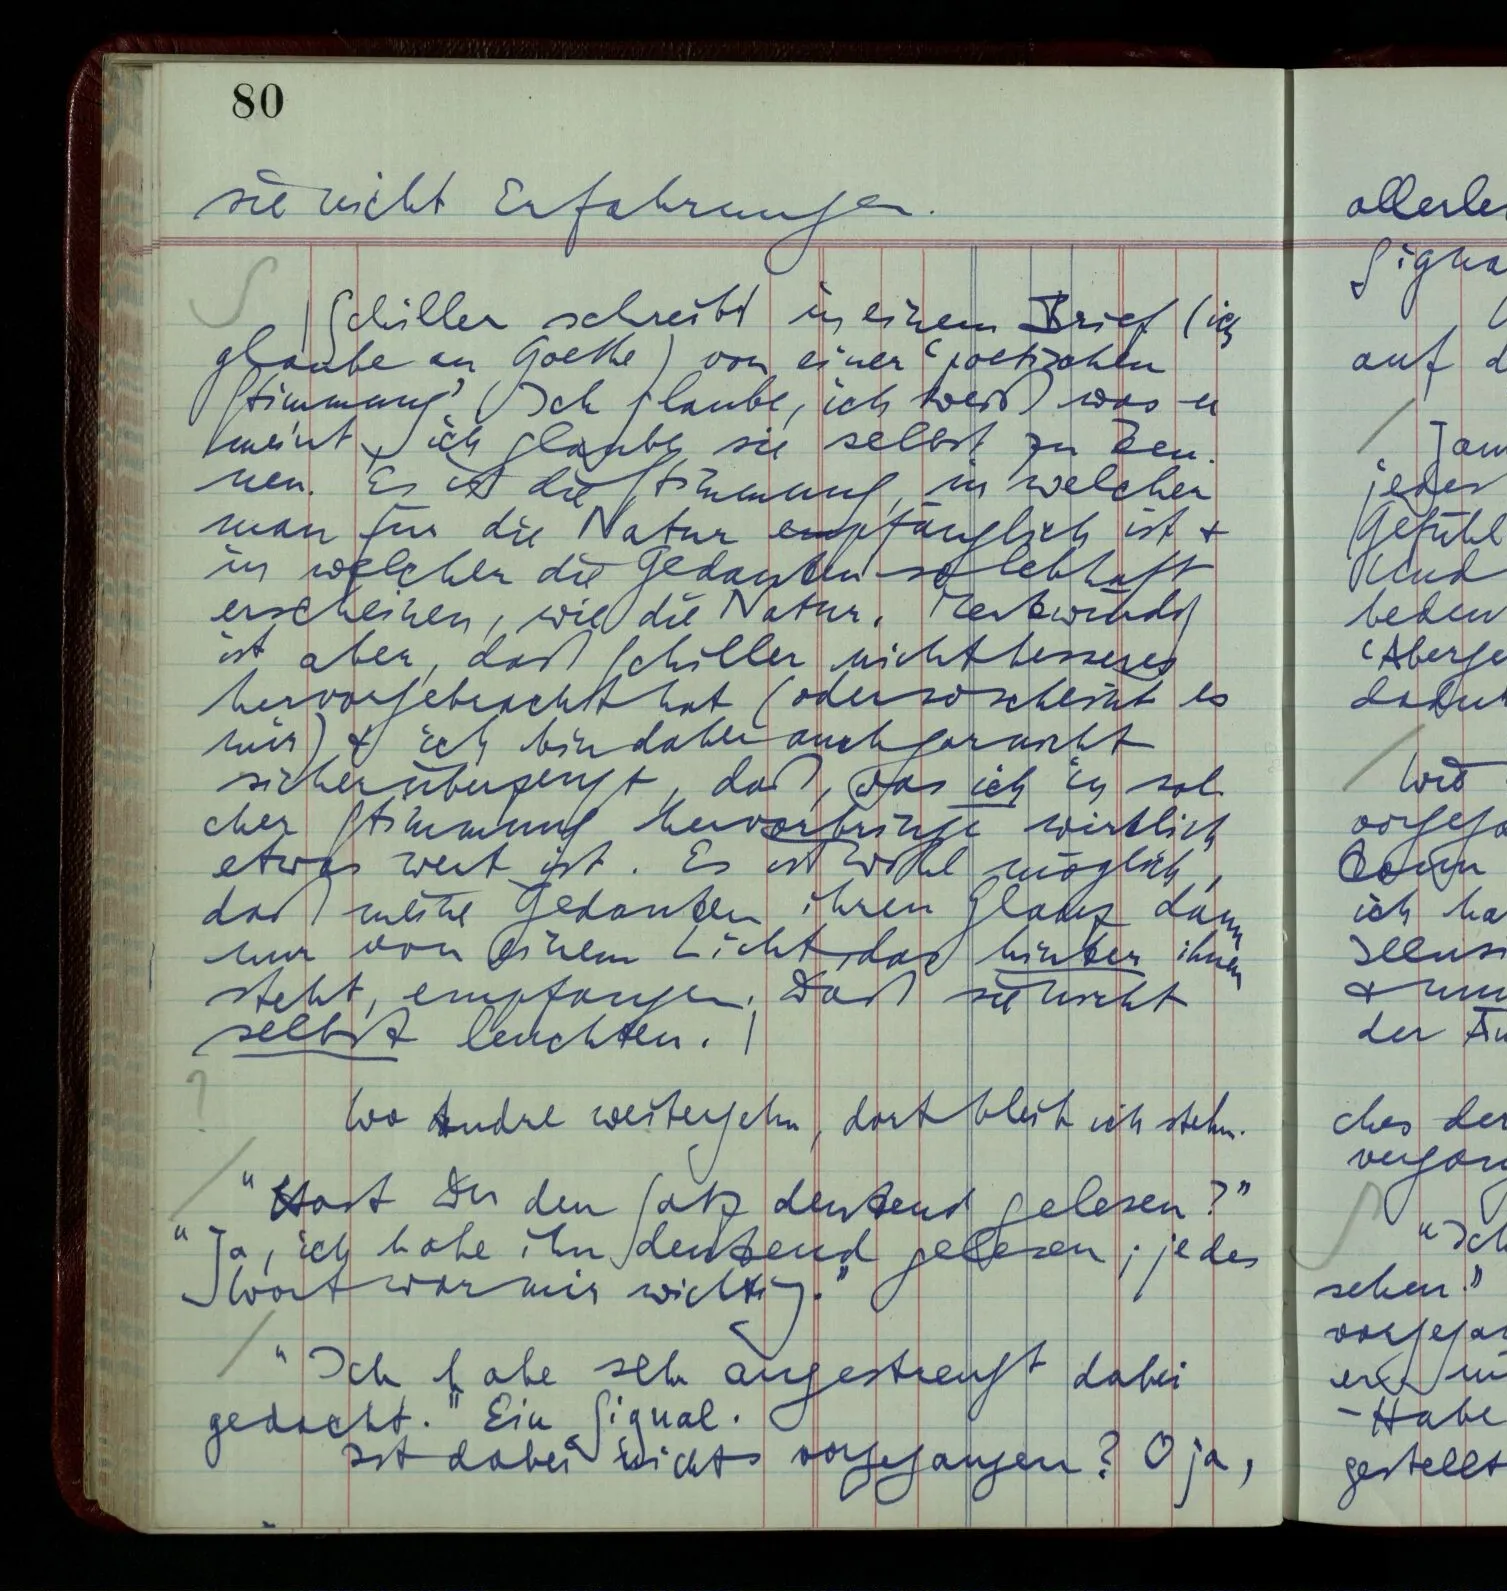 80
sie nicht Erfahrungen.
Schiller schreibt in einem Brief (ich
glaube an Goethe) von einer 'poetischen
Stimmung'. Ich glaube, ich weiß was er
meint, ich glaube sie selbst zu ken-
nen. Es ist die Stimmung, in welcher
man für die Natur empfänglich ist &
in welcher die Gedanken so lebhaft
erscheinen, wie die Natur. Merkwürdig
ist aber, daß Schiller nicht besseres
hervorgebracht hat (oder so scheint es
mir) & ich bin daher auch gar nicht
sicher überzeugt, daß, was ich in sol-
cher Stimmung hervorbringe wirklich
etwas wert ist. Es ist wohl möglich,
daß meine Gedanken ihren Glanz dann
nur von einem Licht, das hinter ihnen
steht, empfangen. Daß sie nicht
selbst leuchten.
?
Wo Andre weitergehn, dort bleib ich stehn.
"Hast Du den Satz denkend gelesen?"
"Ja, ich habe ihn denkend gelesen; jedes
Wort war mir wichtig."
"Ich habe sehr angestrengt dabei
gedacht." Ein Signal.
Ist dabei nichts vorgegangen? O ja,
allerle
Signa
auf d
jedes
Gefühl
Und
bedeu
'Aberge
dadur
Wird
vorgega
kann
ich ha
Illusi
& nun
der Äu
ches der
vergang
"Ich
sehen."
vorgegan
er
-Habe
gestellt